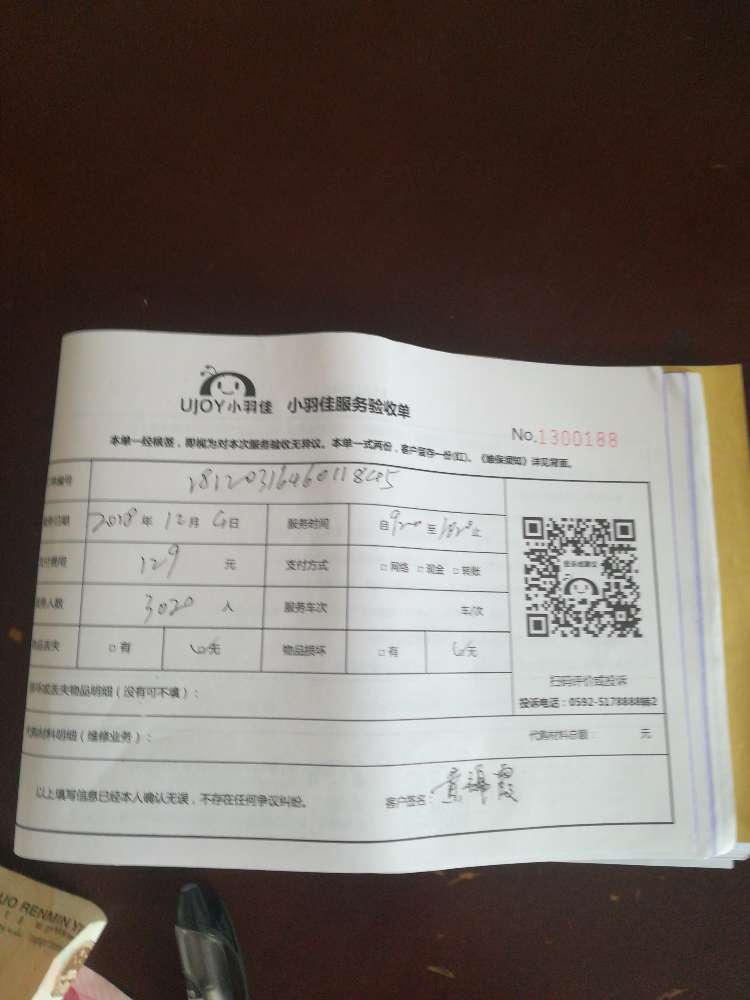 UJOY小羽佳 小羽佳服务验收单
No.1300188
本单一经核签，即视为对本次服务验收无异议。本单一式两份，客户留存一份(红)、《维保须知》详见背面。
单编号
服务日期 2018 年 12 月 4 日 服务时间 自 9:00 至 止
支付费用 129 元 支付方式 □ 网络 □ 现金 □ 转账
服务人数 3020 人 服务车次 车/次
物品丢失 □ 有 ☑ 无 物品损坏 □ 有 ☑ 无
扫码评价或投诉
投诉电话：0592-5178888
损坏或丢失物品明细（没有可不填）：
代购材料明细（维修业务）： 代购材料总额： 元
以上填写信息已经本人确认无误，不存在任何争议纠纷。 客户签名：
UO RENMIN Y